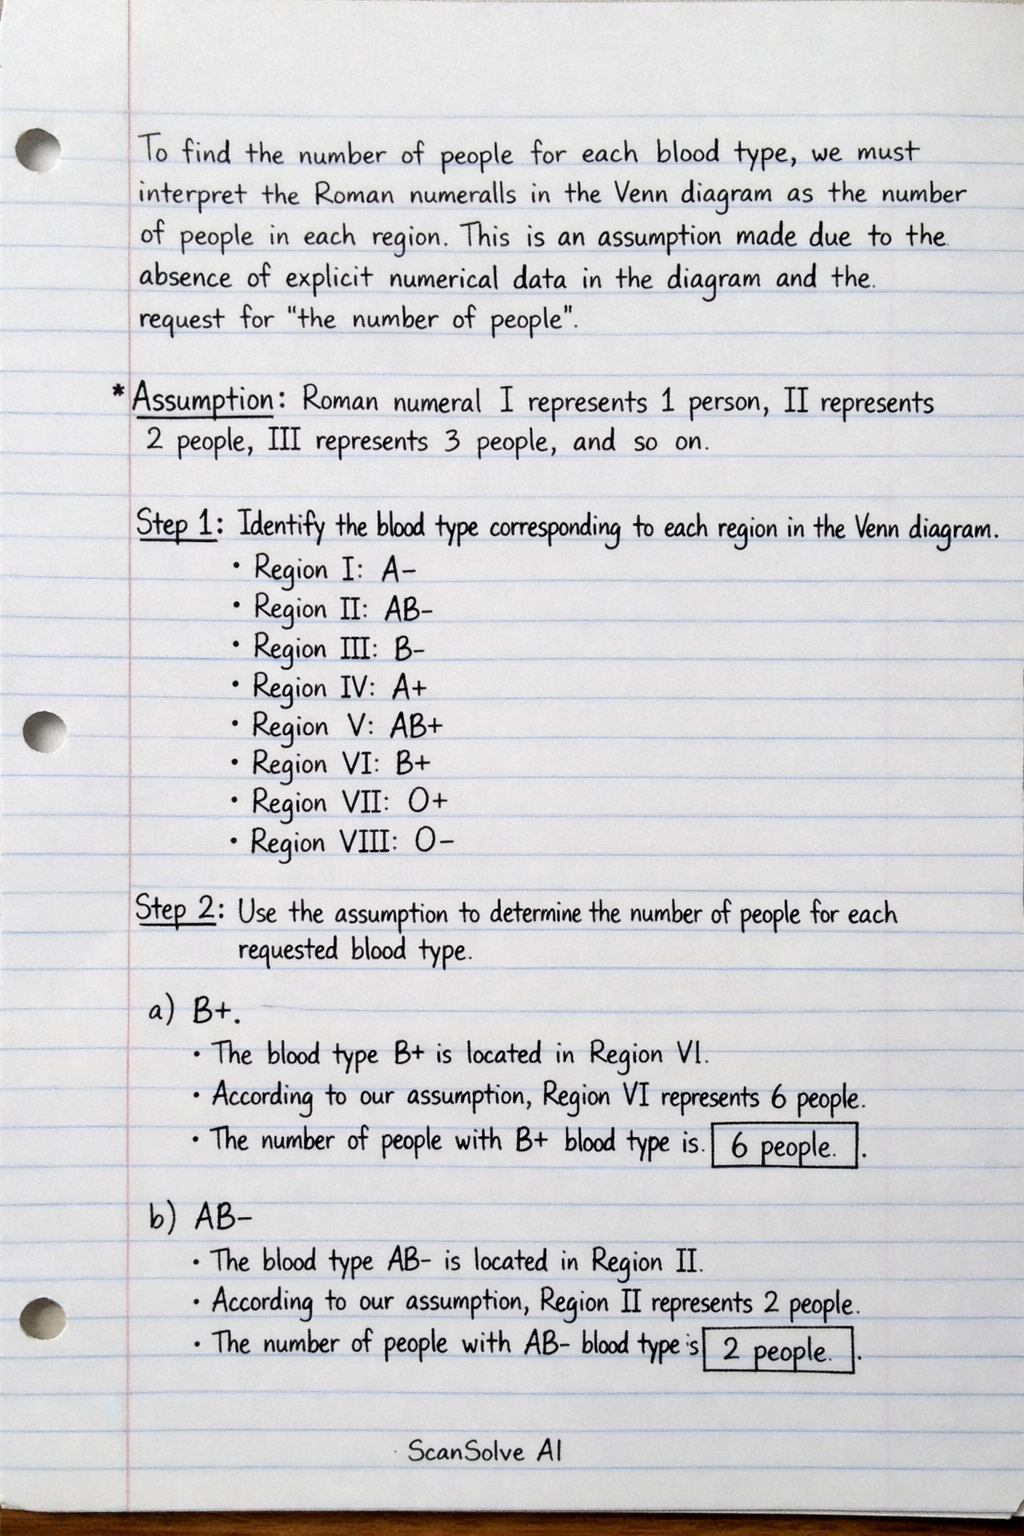 To find the number of people for each blood type, we must
interpret the Roman numeralls in the Venn diagram as the number
of people in each region. This is an assumption made due to the
absence of explicit numerical data in the diagram and the.
request for "the number of people".
* Assumption: Roman numeral I represents 1 person, II represents
2 people, III represents 3 people, and so on.
Step 1: Identify the blood type corresponding to each region in the Venn diagram.
• Region I: A-
• Region II: AB-
• Region III: B-
• Region IV: A+
• Region V: AB+
• Region VI: B+
• Region VII: O+
• Region VIII: O-
Step 2: Use the assumption to determine the number of people for each
requested blood type.
a) B+.
• The blood type B+ is located in Region VI.
• According to our assumption, Region VI represents 6 people.
• The number of people with B+ blood type is. 6 people. .
b) AB-
• The blood type AB- is located in Region II.
• According to our assumption, Region II represents 2 people.
• The number of people with AB- blood type is 2 people. .
ScanSolve AI